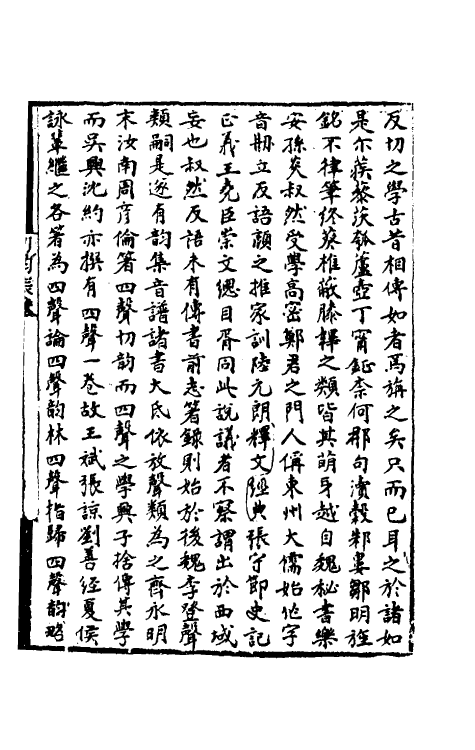 反切之學古昔相傳如者焉旃之矣只而已耳之於諸如
是尒蒺藜茨瓠蘆壺丁甯鉦柰何那句瀆穀邾婁鄒明旌
銘不律筆終葵椎蔽膝韠之類皆其萌牙越自魏秘書樂
安孫炎叔然受學高密鄭君之門人偁東州大儒始作字
音刱立反語顏之推家訓陸元朗釋文經典張守節史記
正義王堯臣崇文總目胥同此說議者不察謂出於西域
妄也叔然反語未有傳書前志箸錄則始於後魏李登聲
類嗣是遂有韵集音譜諸書大氐依放聲類為之齊永明
末汝南周彦倫箸四聲切韵而四聲之學興子捨傳其學
而吳興沈約亦撰有四聲一卷故王斌張諒劉善經夏侯
詠輩繼之各箸為四聲論四聲韵林四聲指歸四聲韵略